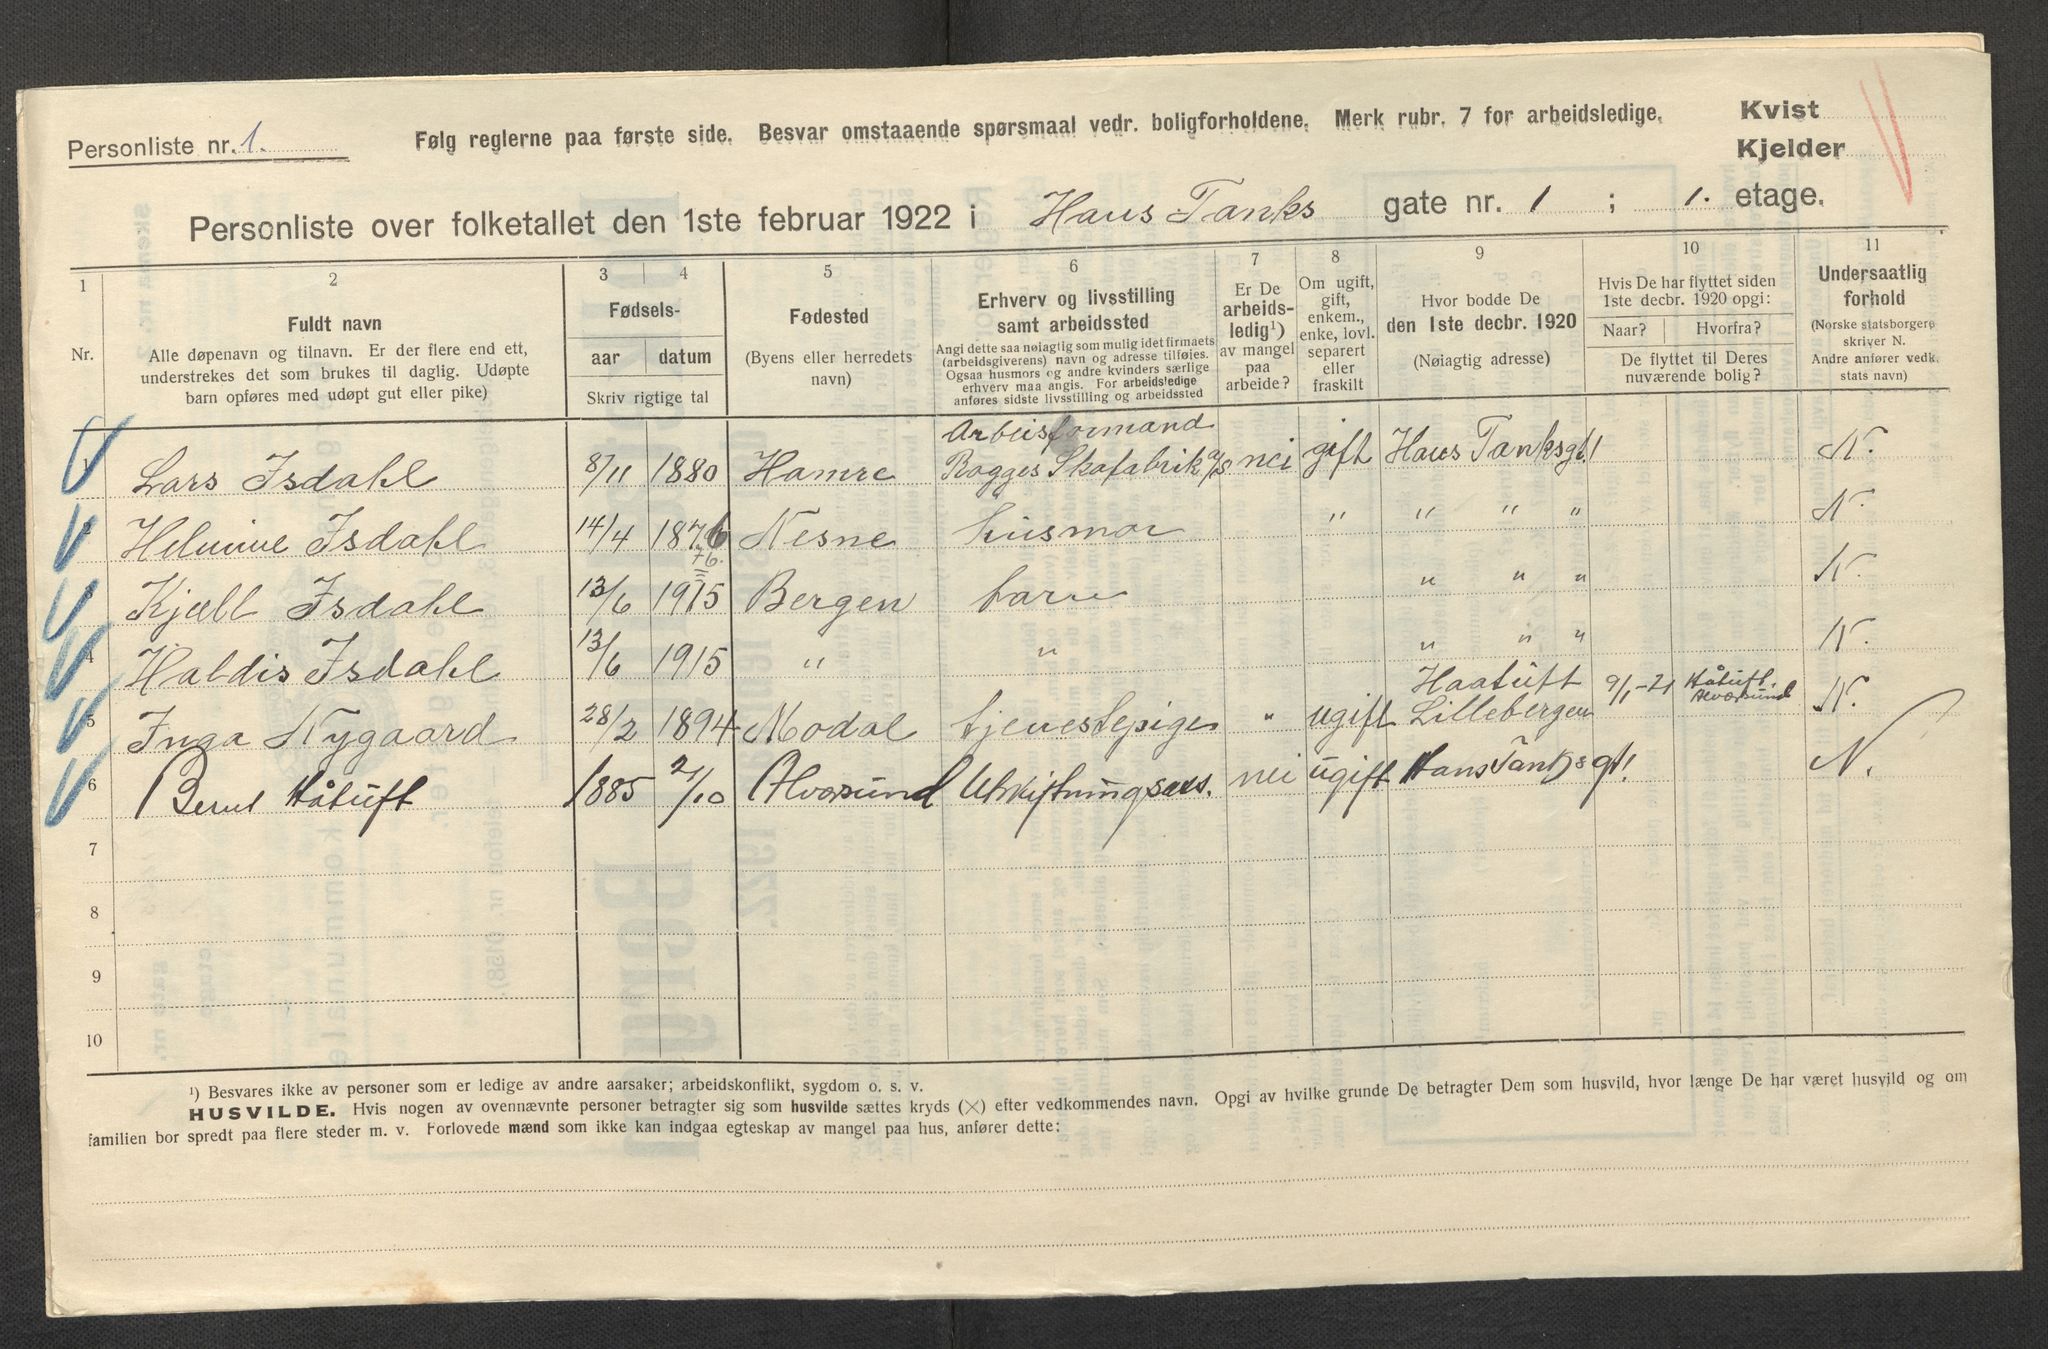 Personliste nr. 1.
Følg reglerne paa første side. Besvar omstaaende spørsmaal vedr. boligforholdene. Merk rubr. 7 for arbeidsledige.
Kvist
Kjelder
Personliste over folketallet den 1ste februar 1922 i Hans Tanks gate nr. 1 ; 1. etage.
1 2 3 4 5 6 7 8 9 10 11
Nr.
Fuldt navn
Alle døpenavn og tilnavn. Er der flere end ett,
understrekes det som brukes til daglig. Udøpte
barn opføres med udøpt gut eller pike)
Fødsels-
aar datum
Skriv rigtige tal
Fødested
(Byens eller herredets
navn)
Erhverv og livsstilling
samt arbeidssted
Angi dette saa nøiagtig som mulig idet firmaets
(arbeidsgiverens) navn og adresse tilføies.
Ogsaa husmors og andre kvinders særlige
erhverv maa angis. For arbeidsledige
anføres sidste livsstilling og arbeidssted
Er De
arbeids-
ledig¹)
av mangel
paa
arbeide?
Om ugift,
gift,
enkem.,
enke, lovl.
separert
eller
fraskilt
Hvor bodde De
den 1ste decbr. 1920
(Nøiagtig adresse)
Hvis De har flyttet siden
1ste decbr. 1920 opgi:
Naar? Hvorfra?
De flyttet til Deres
nuværende bolig?
Undersaatlig
forhold
(Norske statsborgere
skriver N.
Andre anfører vedk.
stats navn)
1 Lars Isdahl 8/11 1880 Hamre Arbeisformand
Rogges Skofabrik a/s nei gift Hans Tanksgt. 1 N.
2 Helmine Isdahl 14/4 1876 Nesne husmor " " " " N.
76.
3 Kjell Isdahl 13/6 1915 Bergen barn " " " N.
4 Haldis Isdahl 13/6 1915 " " " " " N.
5 Inga Nygaard 28/2 1894 Modal tjenestepige " ugift Haatuft
Lillebergen 9/1-21 Håtuft.
Alversund N.
6 Bernt Håtuft 1885 2/10 Alversund Utskiftningsass. nei ugift Hans Tanks gt 1 N.
7
8
9
10
¹) Besvares ikke av personer som er ledige av andre aarsaker; arbeidskonflikt, sygdom o. s. v.
HUSVILDE. Hvis nogen av ovennævnte personer betragter sig som husvilde sættes kryds (×) efter vedkommendes navn. Opgi av hvilke grunde De betragter Dem som husvild, hvor længe De har været husvild og om
familien bor spredt paa flere steder m. v. Forlovede mænd som ikke kan indgaa egteskap av mangel paa hus, anfører dette: